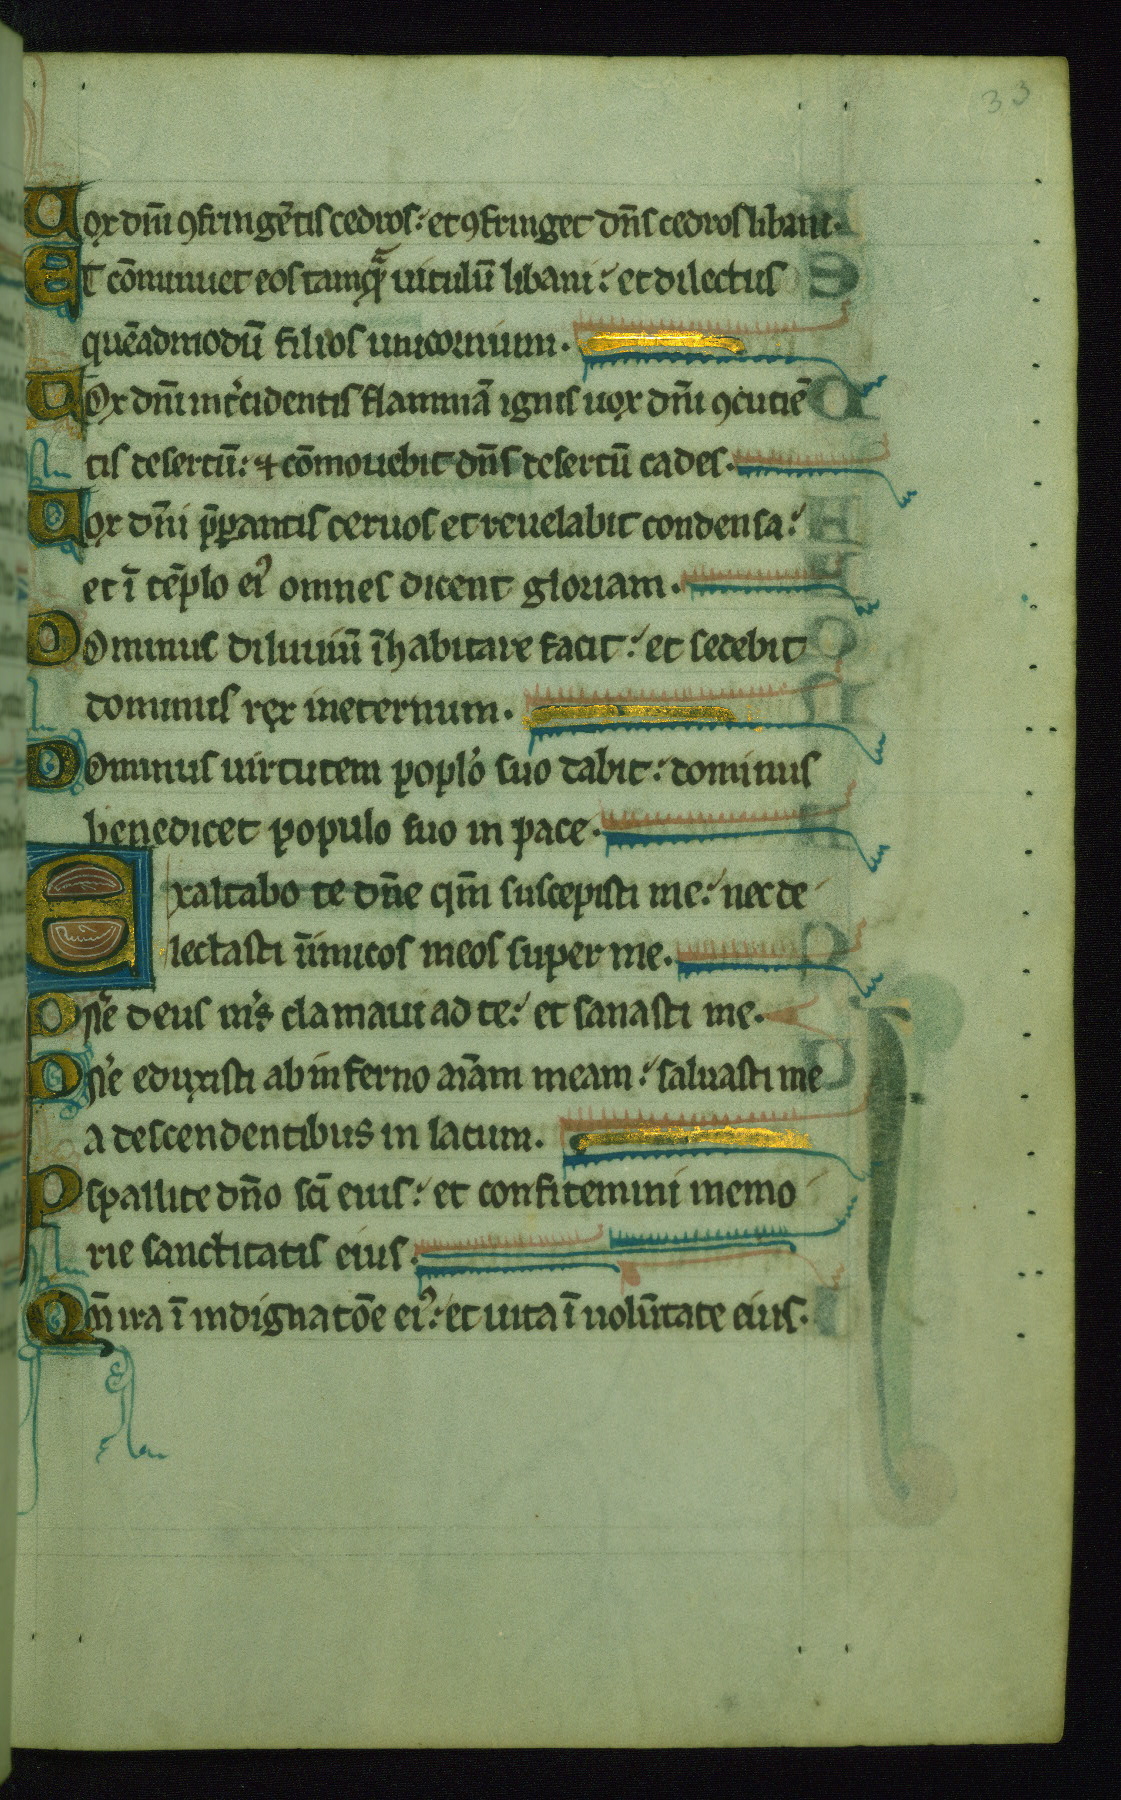 33
Uox dn̄i ꝯfringētis cedros: et ꝯfringet dn̄s cedros libani.
ET cōminuet eos tamqᷓ uitulū libani: et dilectus
quēadmodū filios unicornium.
UOx dn̄i int̉cidentis flammā ignis uox dn̄i ꝯcutiē
tis desertū: ⁊ cōmouebit dn̄s desertū cades.
Uox dn̄i p̄parantis ceruos et reuelabit condensa:
et ī tēplo eiꝰ omnes dicent gloriam.
DOminus diluuiū īhabitare facit: et sedebit
dominus rex ineternum.
DOminus uirtutem poplo̓ suo dabit: dominus
benedicet populo suo in pace.
Exaltabo te dn̄e qm̄ suscepisti me: nec de
lectasti īimicos meos super me.
Dn̄e deus m̓s clamaui ad te: et sanasti me.
Dn̄e eduxisti ab inferno aīam meam: saluasti me
a descendentibus in lacum.
Pspallite dn̄o sc̄i eius: et confitemini memo
rie sanctitatis eius.
Qm̄ ira ī indignatōe eiꝰ: et uita ī uolūtate eius.